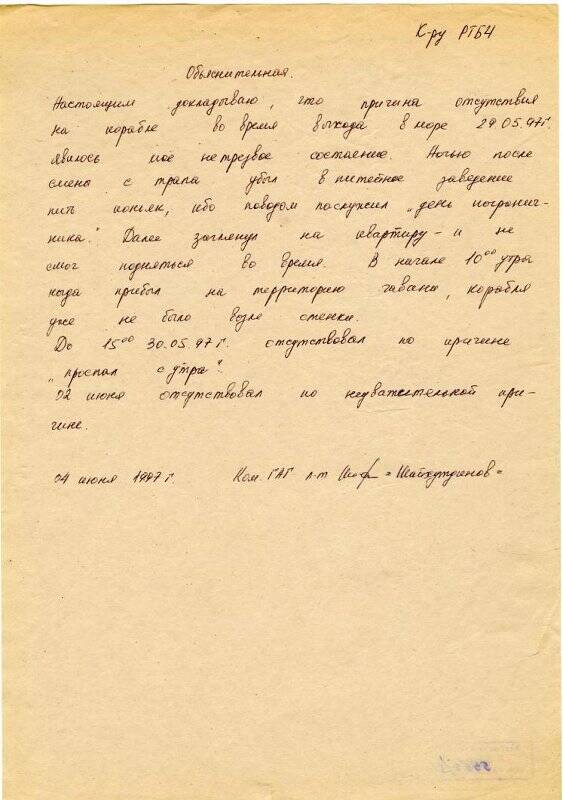 К-ру РТБЧ
Объяснительная.
Настоящим докладываю, что причина отсутствия
на корабле во время выхода в море 29.05.97г.
явилось моё нетрезвое состояние. Ночью после
смены с трапа убыл в питейное заведение
пить коньяк, ибо поводом послужил „день погранич-
ника." Далее заглянул на квартиру – и не
смог подняться во время. В начале 10⁰⁰ утра
когда прибыл на территорию гавани, корабля
уже не было возле стенки.
До 15⁰⁰ 30.05.97г. отсутствовал по причине
„проспал с утра".
02 июня отсутствовал по неуважительной при-
чине.
04 июня 1997г. Ком. ГАГ л-т = Шайхутдинов =